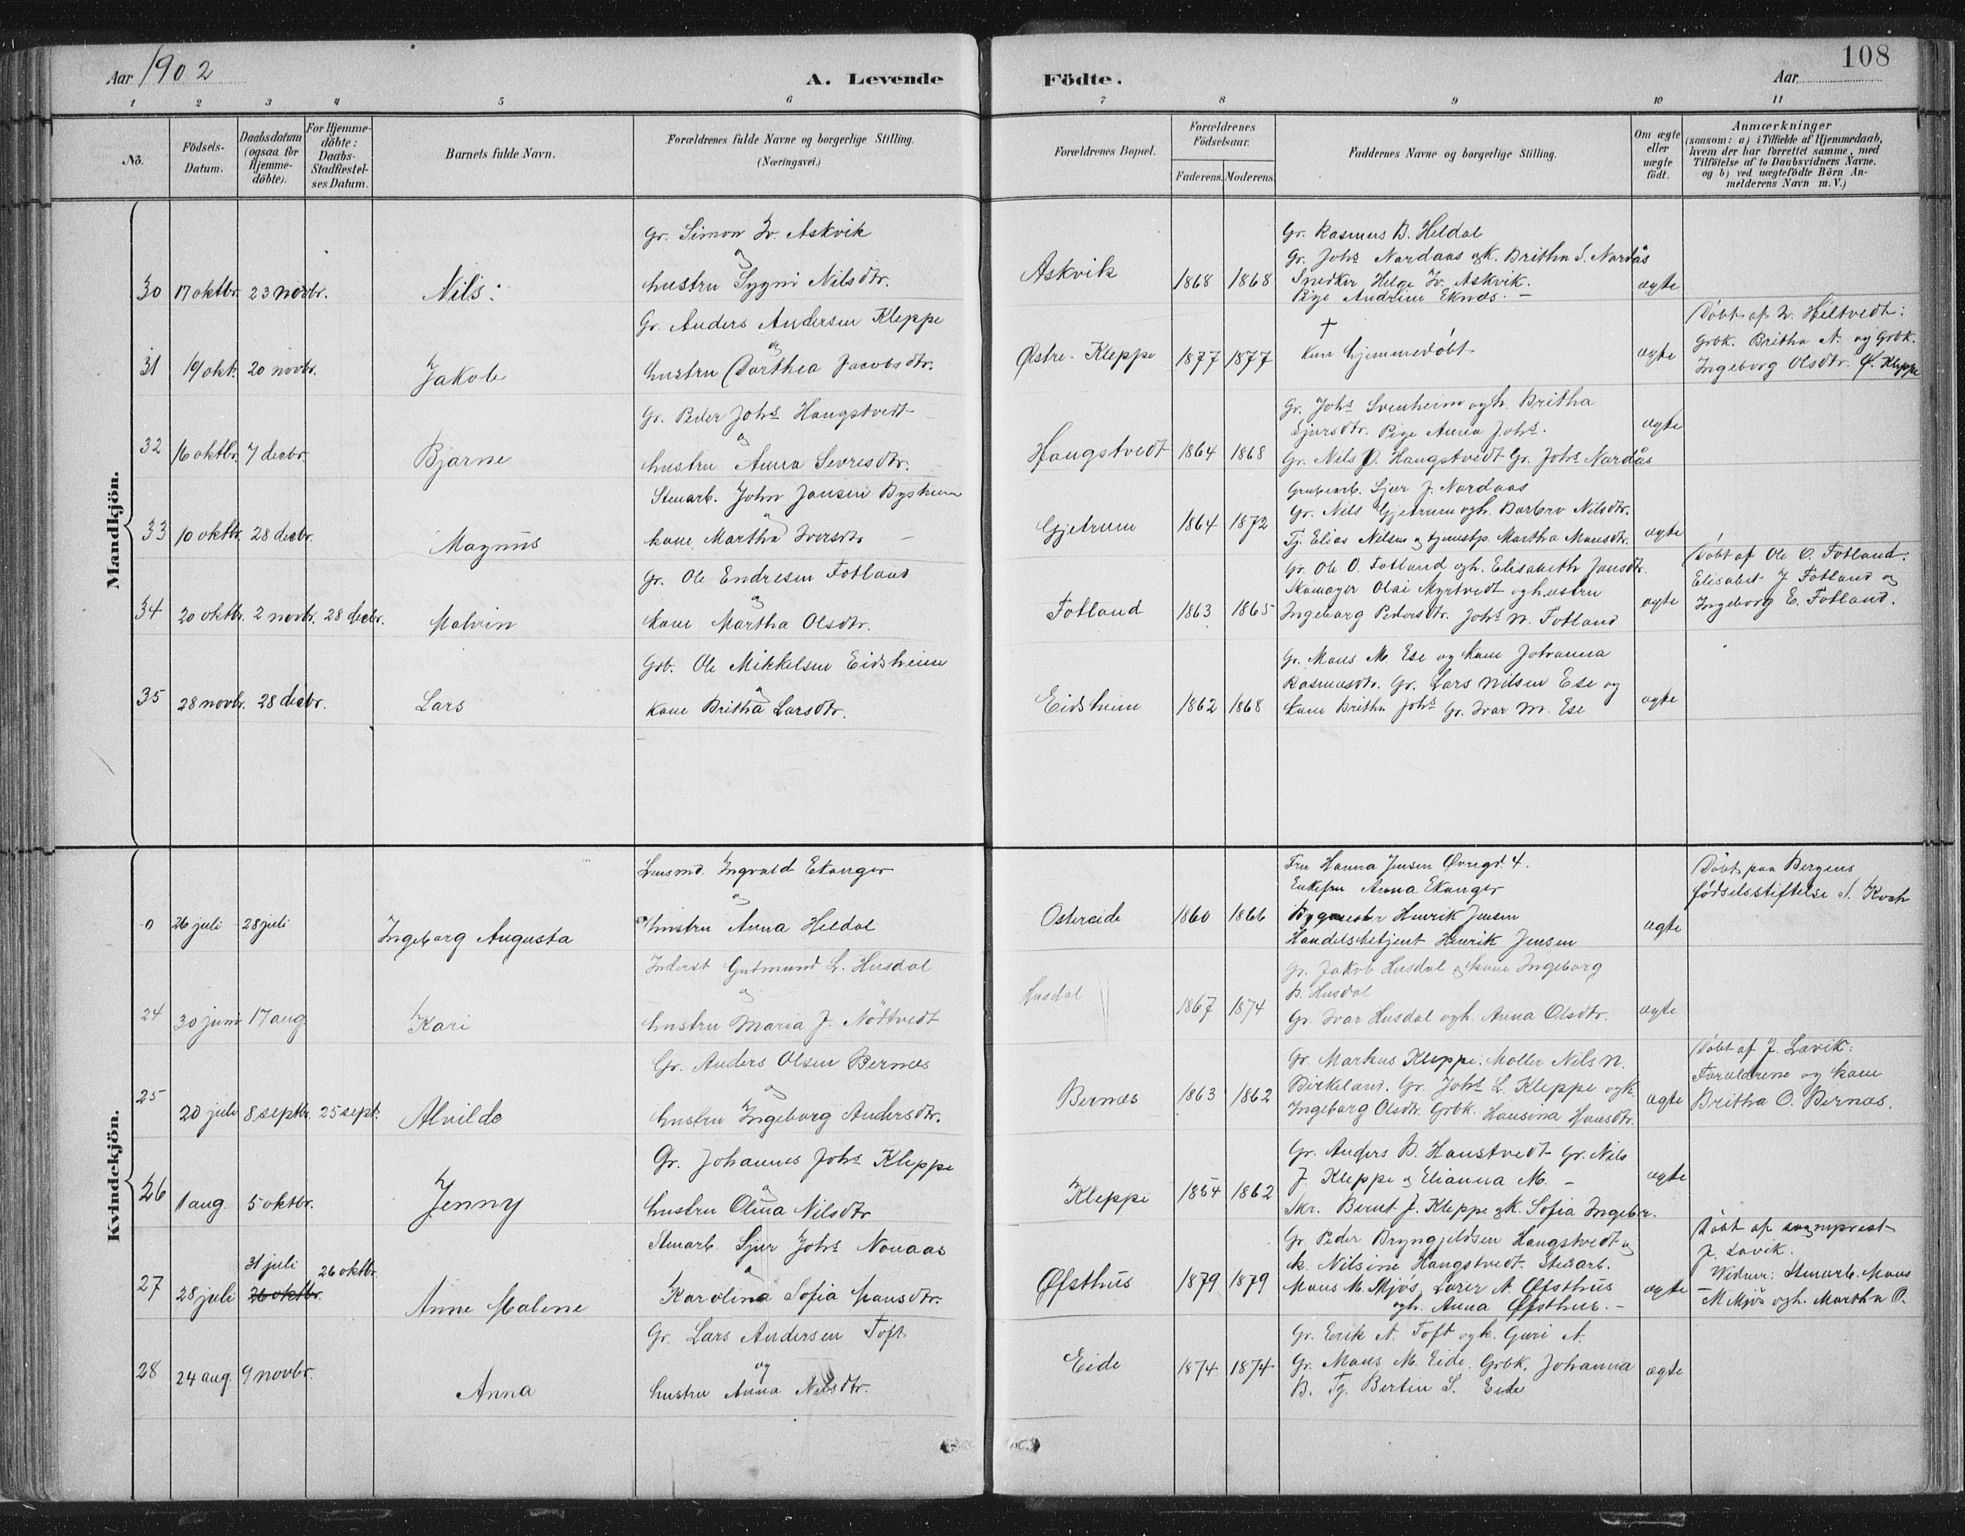 Aar 1902
A. Levende
Födte.
Aar
108
1 2 3 4 5 6 7 8 9 10 11
No.
Födsels-Datum.
Daabsdatum (ogsaa for Hjemme-döbte).
For Hjemme-döbte: Daabs-Stadfæstel-ses Datum.
Barnets fulde Navn.
Forældrenes fulde Navne og borgerlige Stilling.
(Næringsvei.)
Forældrenes Bopæl.
Forældrenes Födselsaar.
Faderens. Moderens.
Faddernes Navne og borgerlige Stilling.
Om ægte eller uægte födt.
Anmærkninger
(saasom: a) i Tilfælde af Hjemmedaab,
hvem der har forrettet samme, med
Tilföielse af to Daabsvidners Navne.
og b) ved uægtefödte Börn An-
melderens Navn m. V.)
Mandkjön.
30 17 oktbr. 23 novbr. Nils:
Gr. Simon Iv. Askvik
og
hustru Sygni Nilsdtr.
Askvik 1868 1868
Gr. Rasmus B. Heldal
Gr. Johs Nordaas ogk. Britha S. Nordås
Snedker Helge Iv. Askvik.
Pige Andrine Eknæs. –
ægte
31 19 okt. 20 novbr. Jakob
Gr. Anders Andersen Kleppe
og
hustru Dorthea Jacobsdtr.
Østre-Kleppe 1877 1877
†
Kun hjemmedøbt
ægte
Døbt af Hiltvedt:
Grbk. Britha A. og Grbk.
Ingeborg Olsdtr. Ø. Kleppe
32 16 oktbr. 7 decbr. Bjarne
Gr. Peder Johs Haugstvedt
og
hustru Anna Sevresdtr.
Haugstvedt 1864 1868
Gr. Johs Svenheim ogh. Britha
Sjursdtr. Pige Anna Johs.
Gr. Nils P. Haugstvedt Gr. Johs Nordås
ægte
33 10 oktbr. 28 decbr. Magnus
Stenarb. John Jansen Bysheim
og
kone Martha Iversdtr –
Gjetrum 1864 1872
Grubearb. Sjur J. Nordaas
Gr. Nils Gjetrum ogh. Barbro Nilsdtr.
Tg. Elias Nilsen og tjenstp. Martha Monsdtr.
ægte
34 20 oktbr. 2 novbr. 28 decbr. Malvin
Gr. Ole Endresen Fotland
og
kone Martha Olsdtr.
Fotland 1863 1865
Gr. Ole O. Fotland ogh. Elisabeth Jansdtr.
Skomager Olai Myrtvedt og hustru
Ingeborg Pedersdtr. Johs N. Fotland
ægte
Døbt af Ole O. Fotland:
Elisabet J Fotland og
Ingeborg E. Fotland.
35 28 novbr. 28 decbr. Lars
Grb. Ole Mikkelsen Eidsheim
og
kone Britha Larsdtr.
Eidsheim 1862 1868
Gr. Mons M. Ese og kone Johanna
Rasmusdtr. Gr. Lars Nilsen Ese og
kone Britha Johs Gr. Ivar M. Ese
ægte
Kvindekjön.
0 26 juli 28 juli Ingeborg Augusta
Lensmd. Ingvald Ekanger
og
hustru Anna Heldal
Ostereide 1860 1866
Fru Hanna Jensen Øvregd. 4.
Enkefru Anna Ekanger
Bygmester Henrik Jensen
Handelsbetjent Henrik Jensen
ægte
Døbt paa Bergens
fødselsstiftelse
24 30 juni 17 aug. Kari
Inderst Gutmund L. Husdal
og
hustru Maria J. Nøttvedt
Husdal 1867 1874
Gr. Jakob Husdal og kone Ingeborg
B. Husdal
Gr. Ivar Husdal ogh. Anna Olsdtr.
ægte
25 20 juli 8 septbr. 25 sept. Alvilde
Gr. Anders Olsen Bernæs
og
hustru Ingeborg Andersdtr.
Bernæs 1863 1862
Gr. Markus Kleppe. Møller Nils N.
Birkeland. Gr. Johs L Kleppe ogk.
Ingeborg Olsdtr. Grbk. Hansina Hansdtr.
ægte
Døbt af J. Lavik:
Forældrene og kone
Britha O. Bernæs.
26 1 aug. 5 oktbr. Jenny
Gr. Johannes Johs Kleppe
og
hustru Olina Nilsdtr
Kleppe 1854 1862
Gr. Anders B. Haustvedt Gr. Nils
J. Kleppe og Elianna M. –
Skr. Bernt J. Kleppe ogk. Sofia Ingebr.
ægte
27 28 juli 31 juli 26 oktbr. 26 oktbr. Anne Malene
Stenarb. Sjur Johs Nonaas
og
Karolina Sofia Monsdtr.
Øfsthus 1879 1879
Gr. Peder Bryngjeldsen Haugstvedt og
k. Nilsine Haugstvedt. Stenarb.
Mons M. Mjøs, Lærer A. Øfsthus
ogh. Anna Øfsthus. –
ægte
Døbt af sogneprest
J. Lavik.
Vidner: Stenarb. Mons
M Mjøs ogh. Martha P.
28 24 aug. 9 novbr. Anna
Gr. Lars Andersen Toft
og
hustru Anna Nilsdtr.
Eide 1874 1874
Gr. Erik A. Toft ogk. Guri A.
Gr. Mons M. Eide. Grbk. Johanna
B. Tg. Bertin S. Eide
ægte